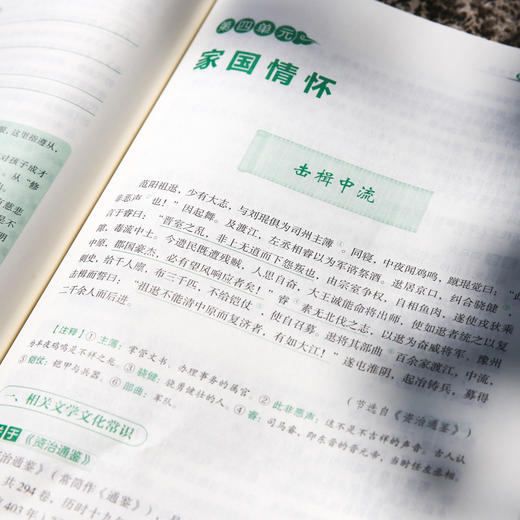 服,这里指遵从。
对孩子成才
从“修
是不
明
第四单元
家国情怀
击楫中流
范阳祖逖,少有大志,与刘琨俱为司州主簿①,同寝,中夜闻鸡鸣,蹴琨觉曰:“此
非恶声②也!”因起舞。及渡江,左丞相睿以为军谘祭酒。逖居京口,纠合骁健③,
言于睿曰:“晋室之乱,非上无道而下怨叛也,由宗室争权,自相鱼肉,遂使戎狄乘
隙,毒流中土。今遗民既遭残贼,人思自奋,大王诚能命将出师,使如逖者统之以复
中原,郡国豪杰,必有望风响应者矣!”睿④素无北伐之志,以逖为奋威将军、豫州
刺史,给千人廪,布三千匹,不给铠仗⑤,使自召募。逖将其部曲⑥百余家渡江,中流,
击楫而誓曰:“祖逖不能清中原而复济者,有如大江!”遂屯淮阴,起冶铸兵,募得
二千余人而后进。
(节选自《资治通鉴》)
【注释】①主簿:掌管文书、办理事务的属官。②此非恶声:这不是不吉祥的声音。古人认
为半夜鸡鸣是不祥之兆。③骁健:骁勇健壮的人。④睿:司马睿,即东晋的晋元帝,当时任左丞相。
⑤铠仗:铠甲与兵器。⑥部曲:军队。
一、相关文学文化常识
《资治通鉴》
资治通鉴》(常简作《通鉴》),
共294卷,历时十九年
403年)